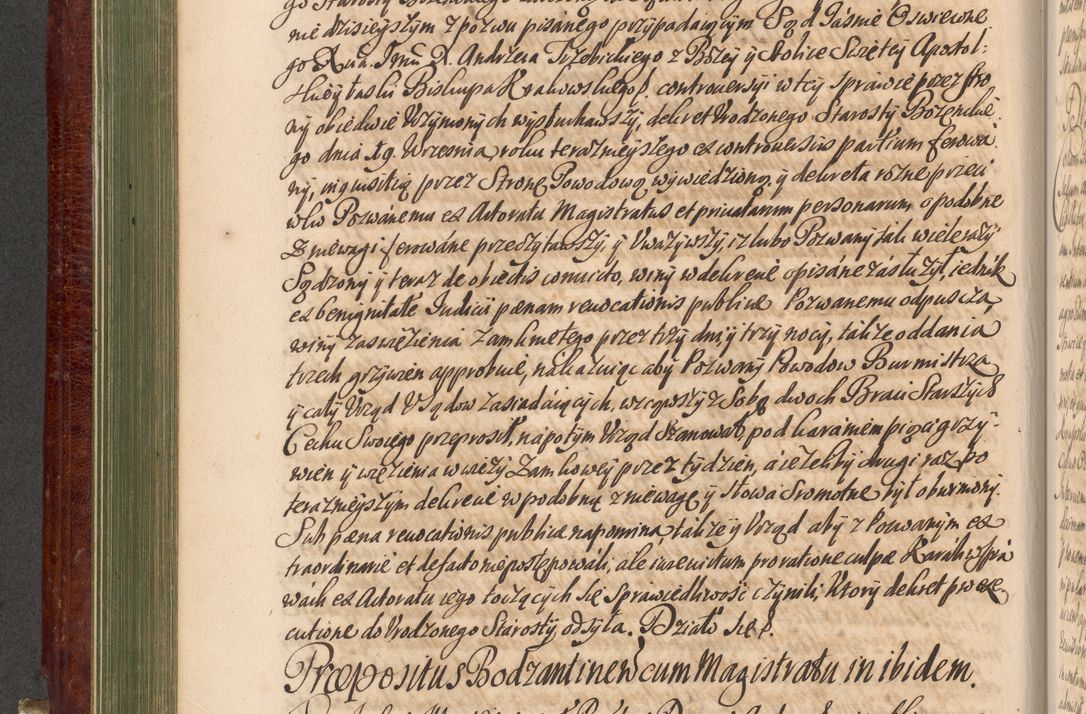 nie dzisieyszym z pozwu pisanego przypadaiącym Sąd Jaśnie Oswiecone
go Xcia Jmci X. Andrzeia Trzebickiego z Bożey y Stolice Świętey Apostol:
skiey łaski Biskupa Krakowskiego controuersyi w tey sprawie przez stro
ny obiedwie wzymonych wysłuchawszy, dekret Urodzonego Starosty Bozencki:
go dnia 19. Wrzesnia roku teraznieyszego ex controuersiis partium ferowa
ny, inquisitią przez Stronę Powodową wywiedzioną y dekreta rozne przeci
wko Pozwanemu ex Actoratu Magistratus et priuatarum personarum, o podobne
zniewagi ferowane przeczytawszy y Uważywszy, iz lubo Pozwany iak wiele razy
Sądzony y teraz de obiectis conuicto, winy w dekrecie opisane zasłużył, iednak
ex benignitate Iudicii pænam reuocationis publicæ Pozwanemu odpuscza,
winy zasiężenia Zamkniętego przez trzy dni y trzy nocy, także oddania
trzech grzywien approbuie, nakazuiąc aby Pozwany Powodow Burmistrza
y cały Urząd Usądow zasiadaiących, wziąwszy z Sobą dwoch Braci Starszych
Cechu Swoiego przeprosił, napotym Urząd szanował, pod karaniem pięci grzy-
wien y więzienia w wieży Zamkowey przez tydzien, a ieżeliby drugi raz po
teraznieyszym dekrecie w podobną zniewagę y słowa sromotne był obwiniony.
Sub pæna reuocationis publicæ napomina także y Urząd aby z Pozwanym ex
traordinarie et de facto niepostępowali, ale iureuictum pro ratione culpæ Karali w sprá
wach ex Actoratu iego toczących się Sprawiedliwość czynili, Ktory dekret pro exe
cutione do Urodzonego Starosty odsyła. Działo się &.
Præpositus Bodzantinen cum Magistratu in ibidem.